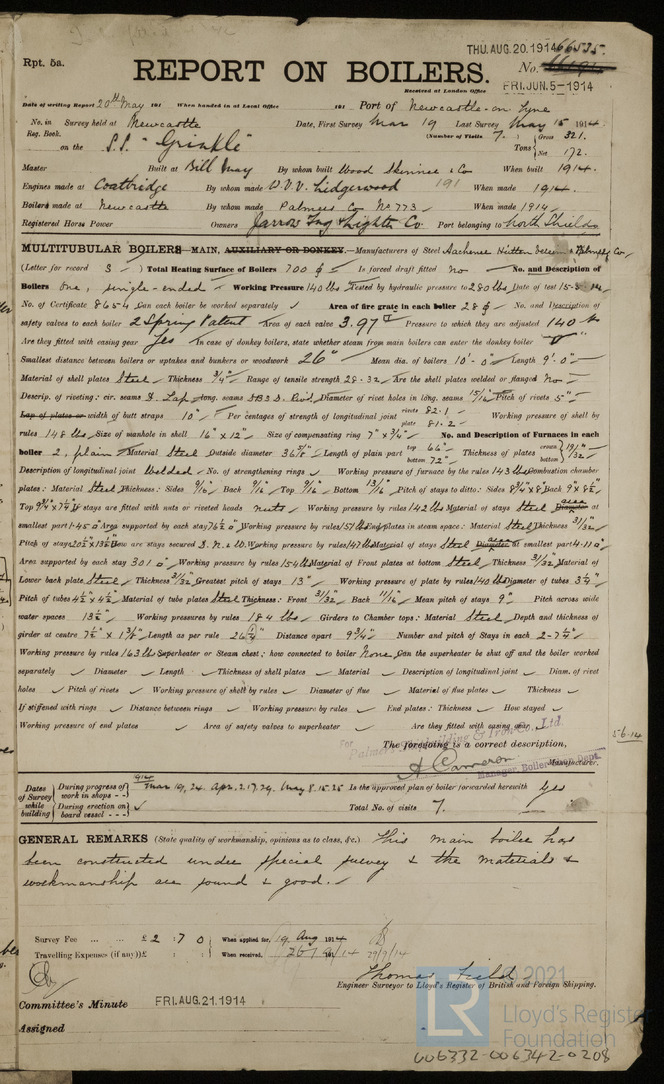 THU. AUG. 20. 1914 66535.
Rpt. 5a.
No.
REPORT ON BOILERS.
Received at London Office FRI. JUN. 5 - 1914
Date of writing Report 20th May 191 When handed in at Local Office 191 Port of Newcastle-on-Tyne
No. in Survey held at Newcastle Date, First Survey Mar 19 Last Survey May 15 1914
Reg. Book. (Number of Visits 7.) Gross 321.
on the S.S. "Grinkle" Tons Net 172.
Master Built at Bill Quay By whom built Wood Skinner & Co When built 1914.
Engines made at Coatbridge By whom made W. V. V. Lidgerwood 191 When made 1914.
Boilers made at Newcastle By whom made Palmers Co No 773 When made 1914
Registered Horse Power Owners Jarrow Tug & Lighter Co. Port belonging to North Shields
MULTITUBULAR BOILERS - MAIN, AUXILIARY OR DONKEY. - Manufacturers of Steel
(Letter for record S) Total Heating Surface of Boilers 700 Is forced draft fitted no No. and Description of
Boilers One, single-ended Working Pressure 140 lbs Tested by hydraulic pressure to 280 lbs Date of test 15-5-14
No. of Certificate 8654 Can each boiler be worked separately Area of fire grate in each boiler 28 No. and Description of
safety valves to each boiler 2 Spring Patent Area of each valve 3.97 Pressure to which they are adjusted 140
Are they fitted with easing gear Yes In case of donkey boilers, state whether steam from main boilers can enter the donkey boiler
Smallest distance between boilers or uptakes and bunkers or woodwork 26" Mean dia. of boilers 10'-0" Length 9'-0"
Material of shell plates Steel Thickness 3/4" Range of tensile strength 28-32 Are the shell plates welded or flanged No
Descrip. of riveting: cir. seams D. Lap long. seams Diameter of rivet holes in long. seams 15/16 Pitch of rivets 5"
Lap of plates or width of butt straps 10" Per centages of strength of longitudinal joint rivets 82.1 plate 81.2 Working pressure of shell by
rules 148 lbs Size of manhole in shell 16" x 12" Size of compensating ring 7" x 3/4" No. and Description of Furnaces in each
boiler 2, plain Material Steel Outside diameter 36 5/8" Length of plain part top 66" bottom 72" Thickness of plates crown 19/32" bottom
Description of longitudinal joint Welded No. of strengthening rings Working pressure of furnace by the rules 143 lbs Combustion chamber
plates: Material Steel Thickness: Sides 9/16" Back 9/16 Top 9/16" Bottom 13/16" Pitch of stays to ditto: Sides 8 3/4 x 8 Back 9" x 8 1/2"
Top If stays are fitted with nuts or riveted heads nuts Working pressure by rules 142 lbs Material of stays Steel Diameter area at
smallest part 1.45 Area supported by each stay 76 1/2 Working pressure by rules 151 lbs End plates in steam space: Material Steel Thickness 31/32"
Pitch of stays How are stays secured D. N. & W. Working pressure by rules 147 lbs Material of stays Steel Diameter area at smallest part 4.11
Area supported by each stay 301 Working pressure by rules 154 lbs Material of Front plates at bottom Steel Thickness 31/32 Material of
Lower back plate Steel Thickness 31/32 Greatest pitch of stays 13" Working pressure of plate by rules 140 lbs Diameter of tubes 3 1/4"
Pitch of tubes 4 1/2" x 4 1/2" Material of tube plates Steel Thickness: Front 31/32" Back 11/16" Mean pitch of stays 9" Pitch across wide
water spaces 13 1/2" Working pressures by rules 184 lbs Girders to Chamber tops: Material Steel Depth and thickness of
girder at centre 7 1/2" x 1 3/8" Length as per rule 26 1/4" Distance apart 9 3/4" Number and pitch of Stays in each 2-7 1/4"
Working pressure by rules 163 lbs Superheater or Steam chest; how connected to boiler None Can the superheater be shut off and the boiler worked
separately Diameter Length Thickness of shell plates Material Description of longitudinal joint Diam. of rivet
holes Pitch of rivets Working pressure of shell by rules Diameter of flue Material of flue plates Thickness
If stiffened with rings Distance between rings Working pressure by rules End plates: Thickness How stayed
Working pressure of end plates Area of safety valves to superheater Are they fitted with easing gear
5.6.14
For Palmers Shipbuilding & Iron Co., Ltd.
The foregoing is a correct description,
A Cameron Manufacturer.
Manager Boiler Dept.
Dates of Survey while building During progress of work in shops - - 1914 Mar 19, 24. Apr. 2. 17. 29. May 8. 15. 25 Is the approved plan of boiler forwarded herewith Yes
During erection on board vessel - - - Total No. of visits 7.
GENERAL REMARKS (State quality of workmanship, opinions as to class, &c.) This main boiler has
been constructed under special survey & the materials &
workmanship are sound & good.
Survey Fee ... ... £ 2 : 7 : 0 When applied for, 19 Aug 1914
Travelling Expenses (if any) £ : : When received, 191 29/9/14
Thomas Field
Engineer Surveyor to Lloyd's Register of British and Foreign Shipping.
Committee's Minute FRI. AUG. 21. 1914
Assigned
© 2021
LR Lloyd's Register
Foundation
006332-006342-0208